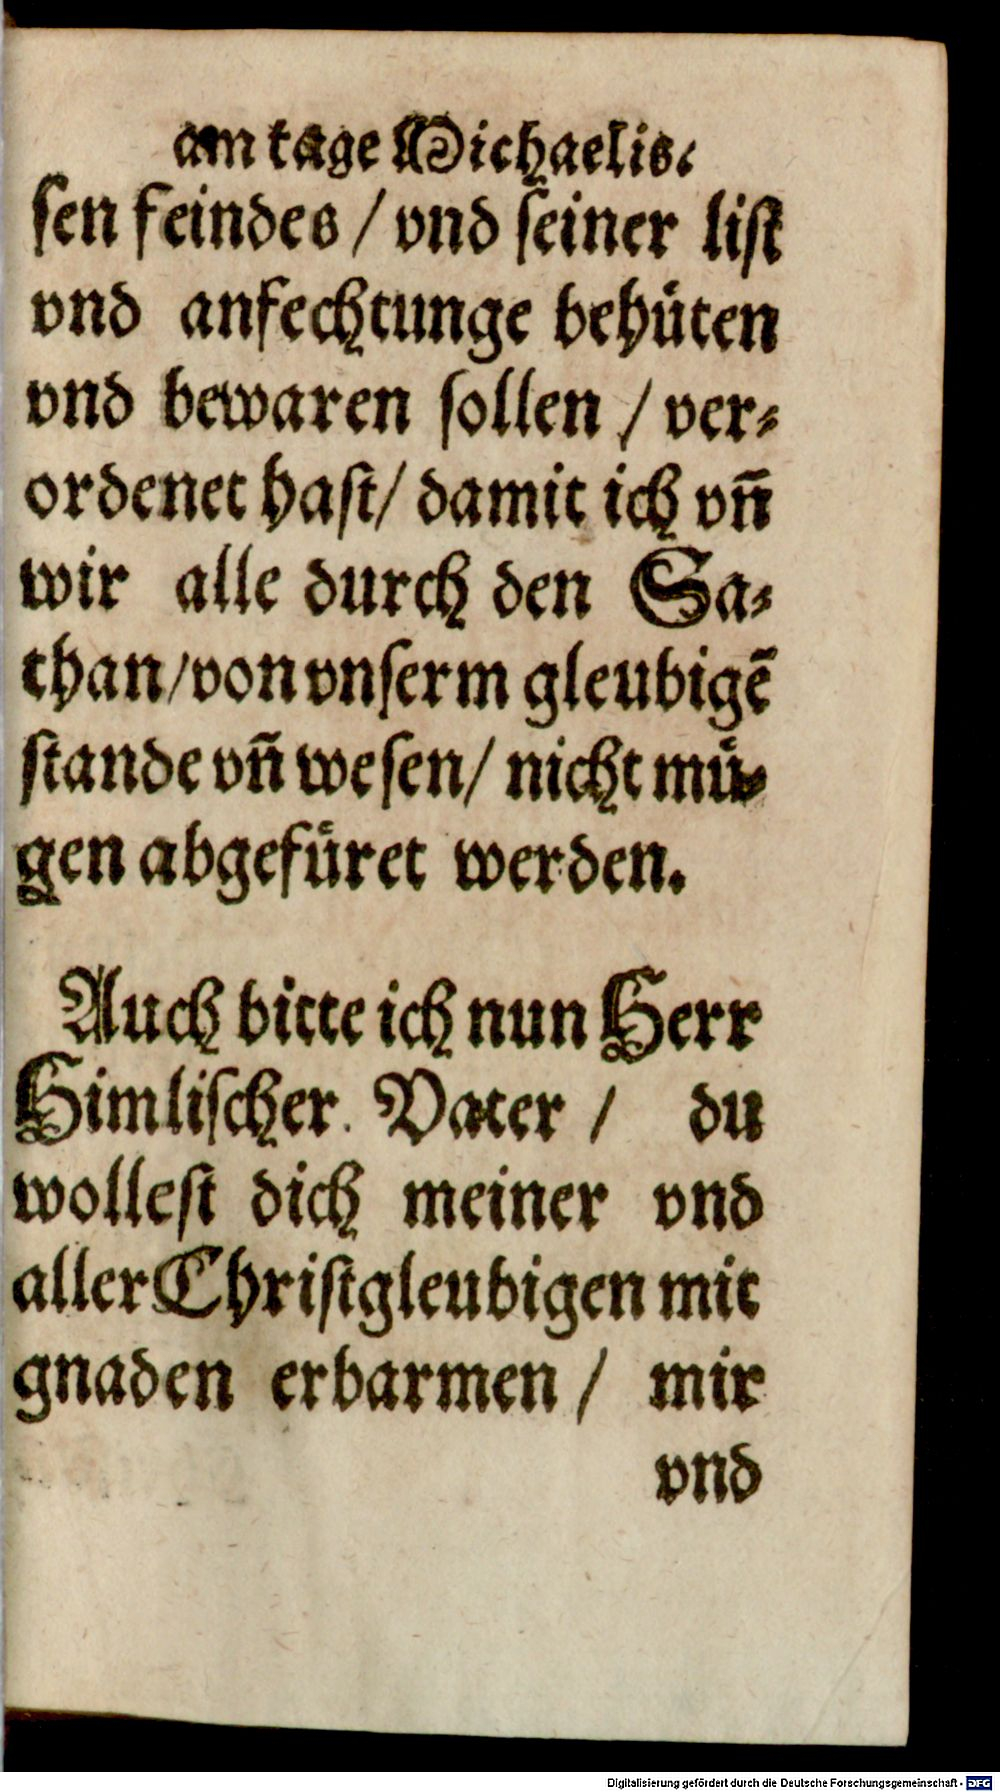 am tage Michaelis.
ſen feindes / vnd ſeiner liſt
vnd anfechtunge behüten
vnd bewaren ſollen / ver⸗
ordenet haſt / damit ich vn̄
wir alle durch den Sa⸗
than / von vnſerm gleubigē
ſtande vn̄ weſen / nicht mü⸗
gen abgefüret werden.
Auch bitte ich nun Herr
Himliſcher Vater / du
wolleſt dich meiner vnd
aller Chriſtgleubigen mit
gnaden erbarmen / mir
vnd
Digitalisierung gefördert durch die Deutsche Forschungsgemeinschaft - DFG